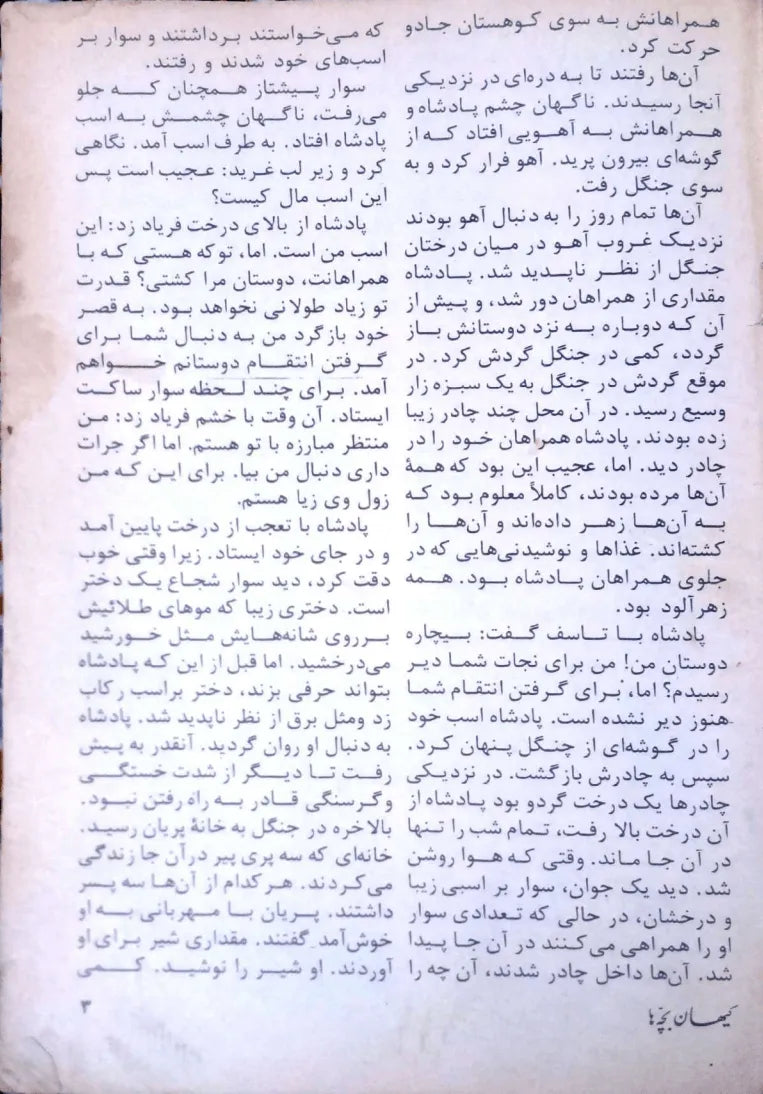 همراهانش به سوی کوهستان جادو
حرکت کرد.
آن‌ها رفتند تا به دره‌ای در نزدیکی
آنجا رسیدند. ناگهان چشم پادشاه و
همراهانش به آهویی افتاد که از
گوشه‌ای بیرون پرید. آهو فرار کرد و به
سوی جنگل رفت.
آن‌ها تمام روز را به دنبال آهو بودند
نزدیک غروب آهو در میان درختان
جنگل از نظر ناپدید شد. پادشاه
مقداری از همراهان دور شد، و پیش از
آن که دوباره به نزد دوستانش باز
گردد، کمی در جنگل گردش کرد. در
موقع گردش در جنگل به یک سبزه زار
وسیع رسید. در آن محل چند چادر زیبا
زده بودند. پادشاه همراهان خود را در
چادر دید. اما، عجیب این بود که همهٔ
آن‌ها مرده بودند، کاملاً معلوم بود که
به آن‌ها زهر داده‌اند و آن‌ها را
کشته‌اند. غذاها و نوشیدنی‌هایی که در
جلوی همراهان پادشاه بود. همه
زهرآلود بود.
پادشاه با تاسف گفت: بیچاره
دوستان من! من برای نجات شما دیر
رسیدم؟ اما، برای گرفتن انتقام شما
هنوز دیر نشده است. پادشاه اسب خود
را در گوشه‌ای از جنگل پنهان کرد.
سپس به چادرش بازگشت. در نزدیکی
چادرها یک درخت گردو بود پادشاه از
آن درخت بالا رفت، تمام شب را تنها
در آن جا ماند. وقتی که هوا روشن
شد. دید یک جوان، سوار بر اسبی زیبا
و درخشان، در حالی که تعدادی سوار
او را همراهی می‌کنند در آن جا پیدا
شد. آن‌ها داخل چادر شدند، آن چه را
که می‌خواستند برداشتند و سوار بر
اسب‌های خود شدند و رفتند.
سوار پیشتاز همچنان که جلو
می‌رفت، ناگهان چشمش به اسب
پادشاه افتاد. به طرف اسب آمد. نگاهی
کرد و زیر لب غرید: عجیب است پس
این اسب مال کیست؟
پادشاه از بالای درخت فریاد زد: این
اسب من است. اما، توکه هستی که با
همراهانت، دوستان مرا کشتی؟ قدرت
تو زیاد طولانی نخواهد بود. به قصر
خود بازگرد من به دنبال شما برای
گرفتن انتقام دوستانم خواهم
آمد. برای چند لحظه سوار ساکت
ایستاد. آن وقت با خشم فریاد زد: من
منتظر مبارزه با تو هستم. اما اگر جرات
داری دنبال من بیا. برای این که من
زول وی زیا هستم.
پادشاه با تعجب از درخت پایین آمد
و در جای خود ایستاد. زیرا وقتی خوب
دقت کرد، دید سوار شجاع یک دختر
است. دختری زیبا که موهای طلائیش
برروی شانه‌هایش مثل خورشید
می‌درخشید. اما قبل از این که پادشاه
بتواند حرفی بزند، دختر براسب رکاب
زد ومثل برق از نظر ناپدید شد. پادشاه
به دنبال او روان گردید. آنقدر به پیش
رفت تا دیگر از شدت خستگی
وگرسنگی قادر به راه رفتن نبود.
بالاخره در جنگل به خانهٔ پریان رسید.
خانه‌ای که سه پری پیر درآن جا زندگی
می‌کردند. هر کدام از آن‌ها سه پسر
داشتند. پریان با مهربانی به او
خوش‌آمد گفتند. مقداری شیر برای او
آوردند. او شیر را نوشید. کمی
کیهان بچه‌ها
۳